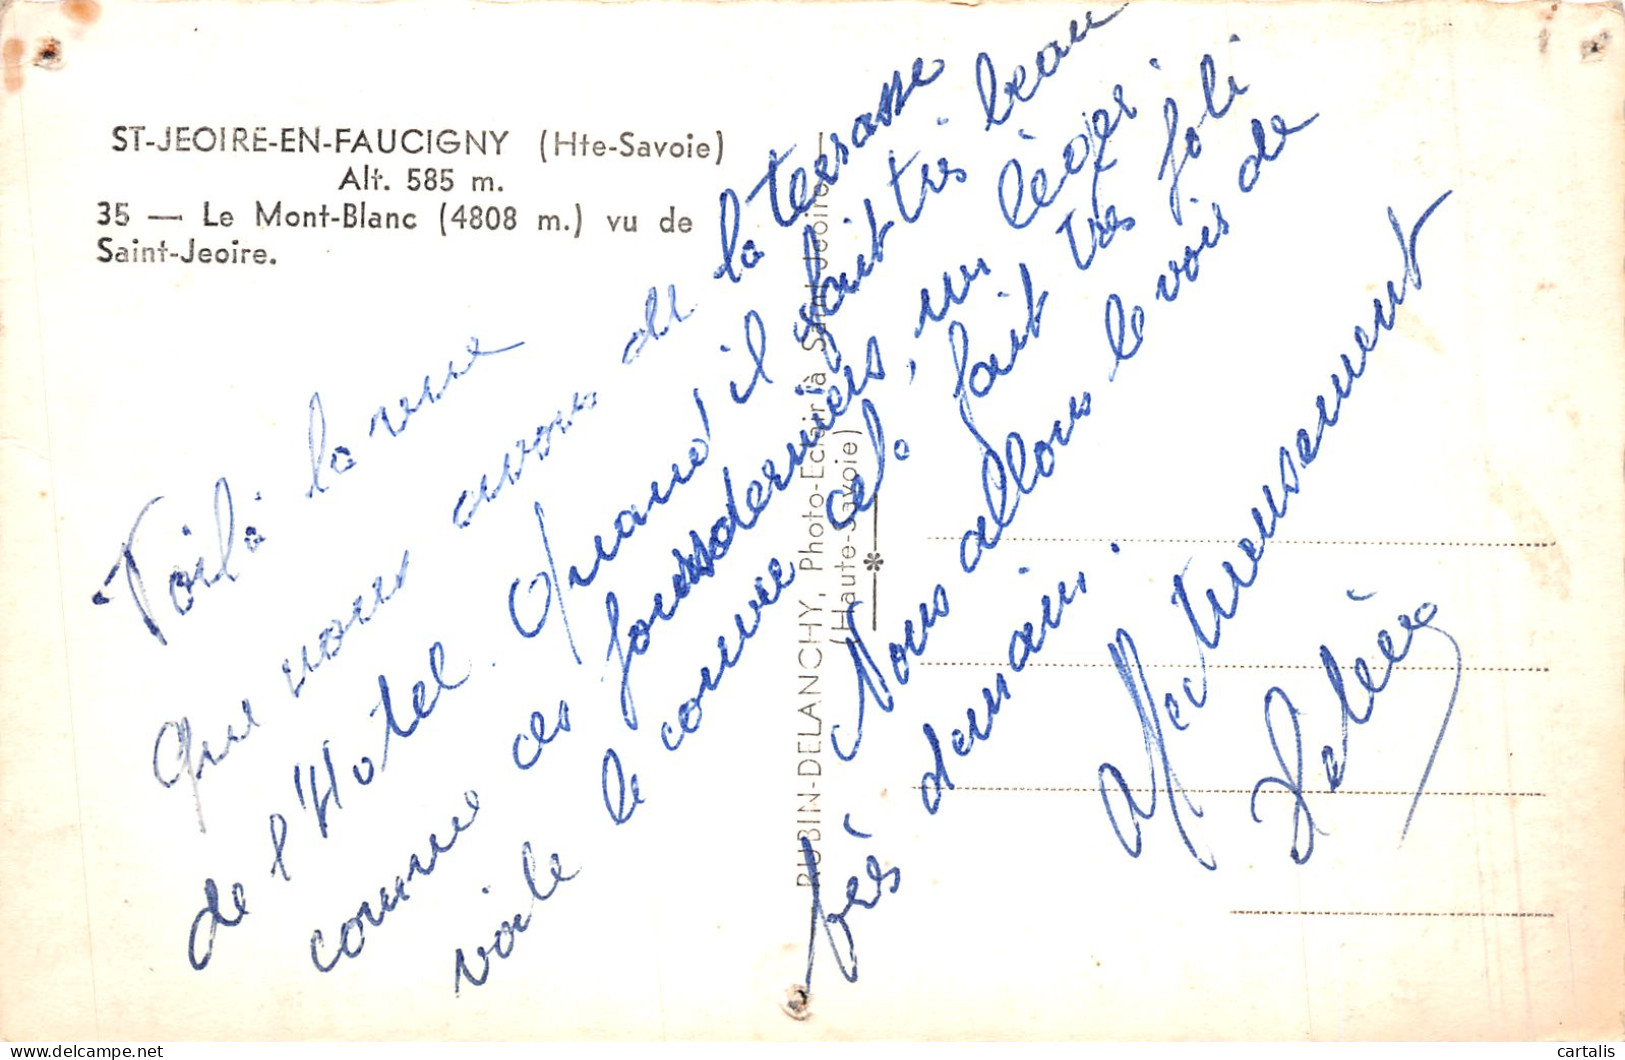 ST-JEOIRE-EN-FAUCIGNY (Hte-Savoie)
Alt. 585 m.
35 — Le Mont-Blanc (4808 m.) vu de
Saint-Jeoire.
Voilà la vue
que nous avons de la terrasse
de l'Hôtel. Quand il fait très beau
comme ces jours derniers, un léger
voile le couvre cela fait très joli
Nous allons le vois de
près demain.
Affectueusement
RUBIN-DELANCHY, Photo-Eclair à Saint-Jeoire
(Haute-Savoie)
cartalis
delcampe.net